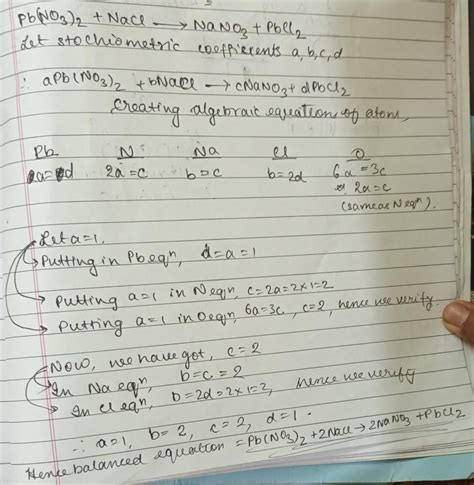 Pb(NO3)2 + NaCl → NaNO3 + PbCl2
Let stochiometric coefficients a, b, c, d
∴ aPb(NO3)2 + bNaCl → cNaNO3 + dPbCl2
Creating algebraic equation of atoms,
Pb N Na Cl O
a=d 2a=c b=c b=2d 6a=3c
or 2a=c
(same as N eqn).
Let a=1,
Putting in Pb eqn, d=a=1
Putting a=1 in N eqn, c=2a=2×1=2
Putting a=1 in O eqn, 6a=3c, c=2, hence we verify.
Now, we have got, c=2
In Na eqn, b=c=2
In Cl eqn, b=2d=2×1=2, hence we verify
∴ a=1, b=2, c=2, d=1.
Hence balanced equation = Pb(NO3)2 + 2NaCl → 2NaNO3 + PbCl2